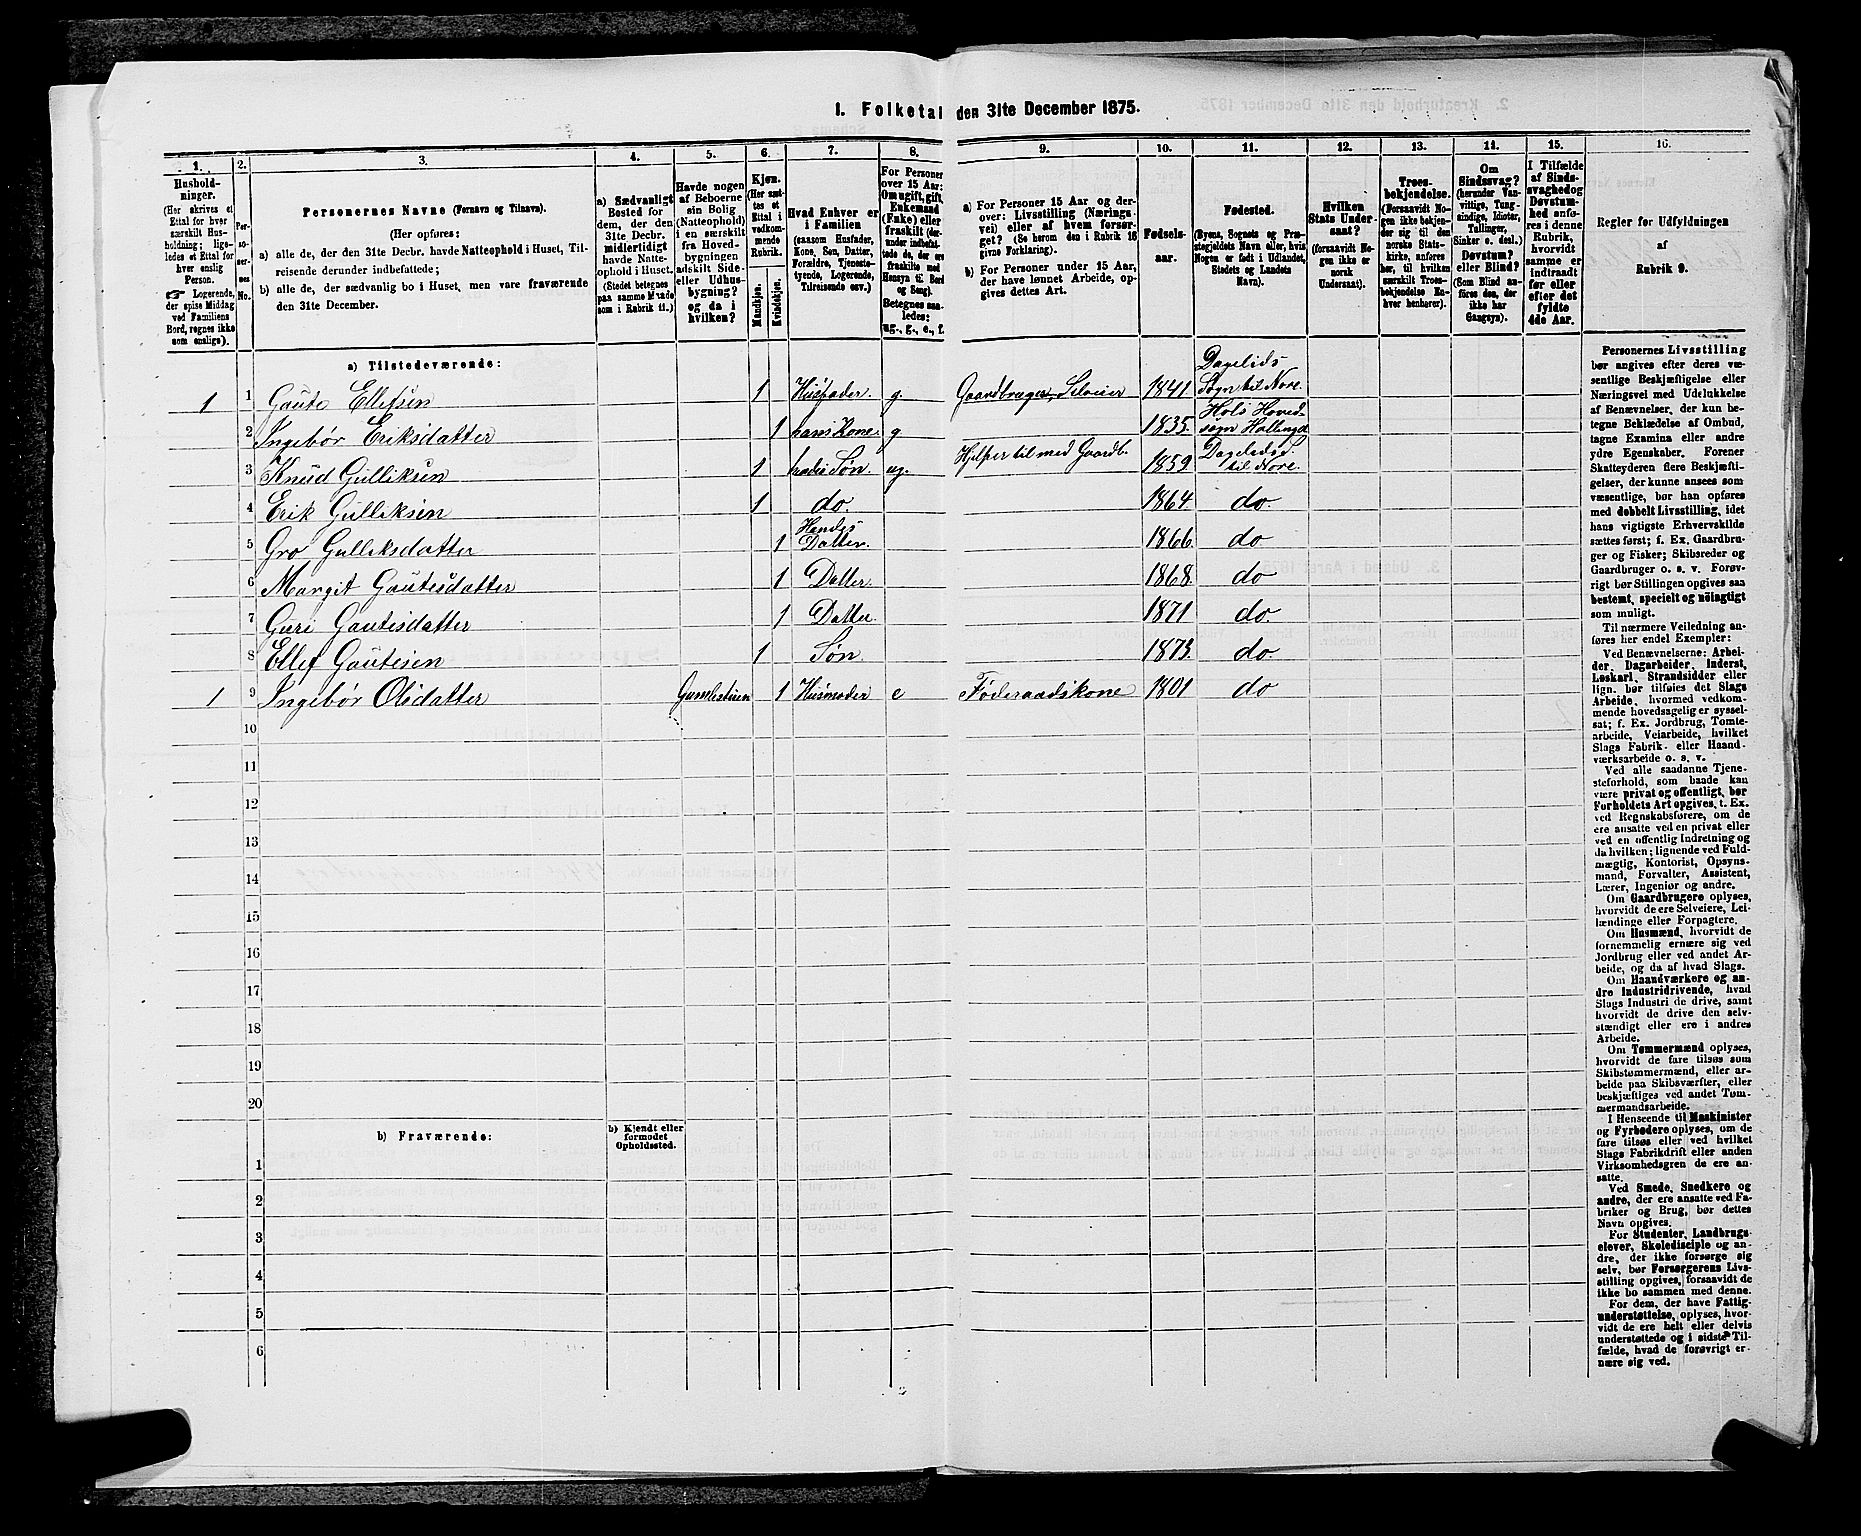 1. Folketal den 31te December 1875.
1. 2. 3. 4. 5. 6. 7. 8. 9. 10. 11. 12. 13. 14. 15. 16.
Hushold-
ninger.
(Her skrives et
Ettal for hver
særskilt Hus-
holdning; lige-
ledes et Ettal for
hver enslig
Person.
☞ Logerende,
der spise Middag
ved Familiens
Bord, regnes ikke
som enslige).
Per-
so-
ner-
nes
No.
Personernes Navne (Fornavn og Tilnavn).
(Her opføres:
a) alle de, der den 31te Decbr. havde Natteophold i Huset, Til-
reisende derunder indbefattede;
b) alle de, der sædvanlig bo i Huset, men vare fraværende
den 31te December.
a) Sædvanligt
Bosted for
dem, der den
31te Decbr.
midlertidigt
havde Natte-
ophold i Huset.
(Stedet betegnes
paa samme Maade
som i Rubrik 11.)
Havde nogen
af Beboerne
sin Bolig
(Natteophold)
i en særskilt
fra Hoved-
bygningen
adskilt Side-
eller Udhus-
bygning?
og da i
hvilken?
Kjøn.
(Her sæt-
tes et
Ettal i
vedkom-
mende
Rubrik.
Mandkjøn.
Kvindekjøn.
Hvad Enhver er
i Familien
(saasom Husfader,
Kone, Søn, Datter,
Forældre, Tjeneste-
tyende, Logerende,
Tilreisende osv.)
For Personer
over 15 Aar:
Om ugift, gift,
Enkemand
(Enke) eller
fraskilt (der-
under indbefat-
tede de, der ere
fraskilte med
Hensyn til Bord
og Seng).
Betegnes saa-
ledes:
ug., g., e., f.
a) For Personer 15 Aar og der-
over: Livsstilling (Nærings-
vei) eller af hvem forsør-
get? (Se herom den i Rubrik 16
givne Forklaring).
b) For Personer under 15 Aar,
der have lønnet Arbeide, op-
gives dettes Art.
Fødsels-
aar.
Fødested.
(Byens, Sognets og Præ-
stegjeldets Navn eller, hvis
Nogen er født i Udlandet,
Stedets og Landets
Navn).
Hvilken
Stats Under-
saat?
(forsaavidt No-
gen ikke er
norsk
Undersaat).
Troes-
bekjendelse.
(Forsaavidt No-
gen ikke bekjen-
der sig til den
norske Stats-
kirke, anføres
her, til hvilken
særskilt Troes-
bekjendelse En-
hver henhører).
Om
Sindssvag?
(herunder Van-
vittige, Tung-
sindige, Idioter,
Tullinger,
Sinker o. desl.)
Døvstum?
eller Blind?
(Som Blind an-
føres den, der
ikke har
Gangsyn).
I Tilfælde
af Sinds-
svaghed og
Døvstum-
hed anfø-
res i denne
Rubrik,
hvorvidt
samme er
indtraadt
før eller
efter det
fyldte
4de Aar.
Regler for Udfyldningen
af
Rubrik 9.
a) Tilstedeværende:
1 1 Gaute Ellefsen 1 Husfader g. Gaardbruger, Selveier 1841 Dagelids Sogn til Nore.
2 Ingebør Eriksdatter 1 hans Kone. g 1835. Hols Hovedsogn Hallingd
3 Knud Gulliksen 1 hendes Søn. ug. Hjelper til med Gaardb. 1859 til Nore.
4 Erik Gulliksen 1 do. 1864. do.
5 Gro Gulliksdatter 1 Hendes Datter. 1866. do.
6 Margit Gautesdatter 1 Datter. 1868. do
7 Guri Gautesdatter 1 Datter. 1871 do.
8 Ellef Gautesen 1 Søn. 1873. do.
1 9 Ingebør Olsdatter 1 Husmoder e Føderaadskone 1801 do
10
11
12
13
14
15
16
17
18
19
20
b) Fraværende:
b) Kjendt eller
formodet
Opholdssted.
1
2
3
4
5
6
Personernes Livsstilling
bør angives efter deres væ-
sentlige Beskjæftigelse eller
Næringsvei med Udelukkelse
af Benævnelser, der kun be-
tegne Beklædelse af Ombud,
tagne Examina eller andre
ydre Egenskaber. Forener
Skatteyderen flere Beskjæfti-
gelser, der kunne ansees som
væsentlige, bør han opføres
med dobbelt Livsstilling, idet
hans vigtigste Erhvervskilde
sættes først; f. Ex. Gaardbru-
ger og Fisker; Skibsreder og
Gaardbruger o. s. v. Forøv-
rigt bør Stillingen opgives saa
bestemt, specielt og nøiagtigt
som muligt.
Til nærmere Veiledning an-
føres her endel Exempler:
Ved Benævnelserne: Arbei-
der, Dagarbeider, Inderst,
Løskarl, Strandsidder eller
lign. bør tilføies det Slags
Arbeide, hvormed vedkom-
mende hovedsagelig er syssel-
sat; f. Ex. Jordbrug, Tomte-
arbeide, Veiarbeide, hvilket
Slags Fabrik- eller Haand-
værksarbeide o. s. v.
Ved alle saadanne Tjene-
steforhold, som baade kan
være privat og offentligt, bør
Forholdets Art opgives, t. Ex.
ved Regnskabsførere, om de
ere ansatte ved en privat eller
ved en offentlig Indretning og
da hvilken; lignende ved Fuld-
mægtig, Kontorist, Opsyns-
mand, Forvalter, Assistent,
Lærer, Ingeniør og andre.
Om Gaardbrugere oplyses,
hvorvidt de ere Selveiere, Lei-
lændinge eller Forpagtere.
Om Husmænd, hvorvidt de
fornemmelig ernære sig ved
Jordbrug eller ved andet Ar-
beide, og da af hvad Slags.
Om Haandværkere og an-
dre Industridrivende, hvad
Slags Industri de drive, samt
hvorvidt de drive den selv-
stændigt eller ere i andres
Arbeide.
Om Tømmermænd oplyses,
hvorvidt de fare tilsøs som
Skibstømmermænd, eller ar-
beide paa Skibsværfter, eller
beskjæftiges ved andet Tøm-
mermandsarbeide.
I Henseende til Maskinister
og Fyrbødere oplyses, om de
fare tilsøs eller ved hvilket
Slags Fabrikdrift eller anden
Virksomhedsgren de ere an-
satte.
Ved Smede, Snedkere og
andre, der ere ansatte ved Fa-
briker og Brug, bør dettes
Navn opgives.
For Studenter, Landbrugs-
elever, Skoledisciple og an-
dre, der ikke forsørge sig
selv, bør Forsørgerens Livs-
stilling opgives, forsaavidt de
ikke bo sammen med denne.
For dem, der have Fattig-
understøttelse, oplyses, hvor-
vidt de ere helt eller delvis
understøttede og i sidste Til-
fælde, hvad de forøvrigt er-
nære sig ved.